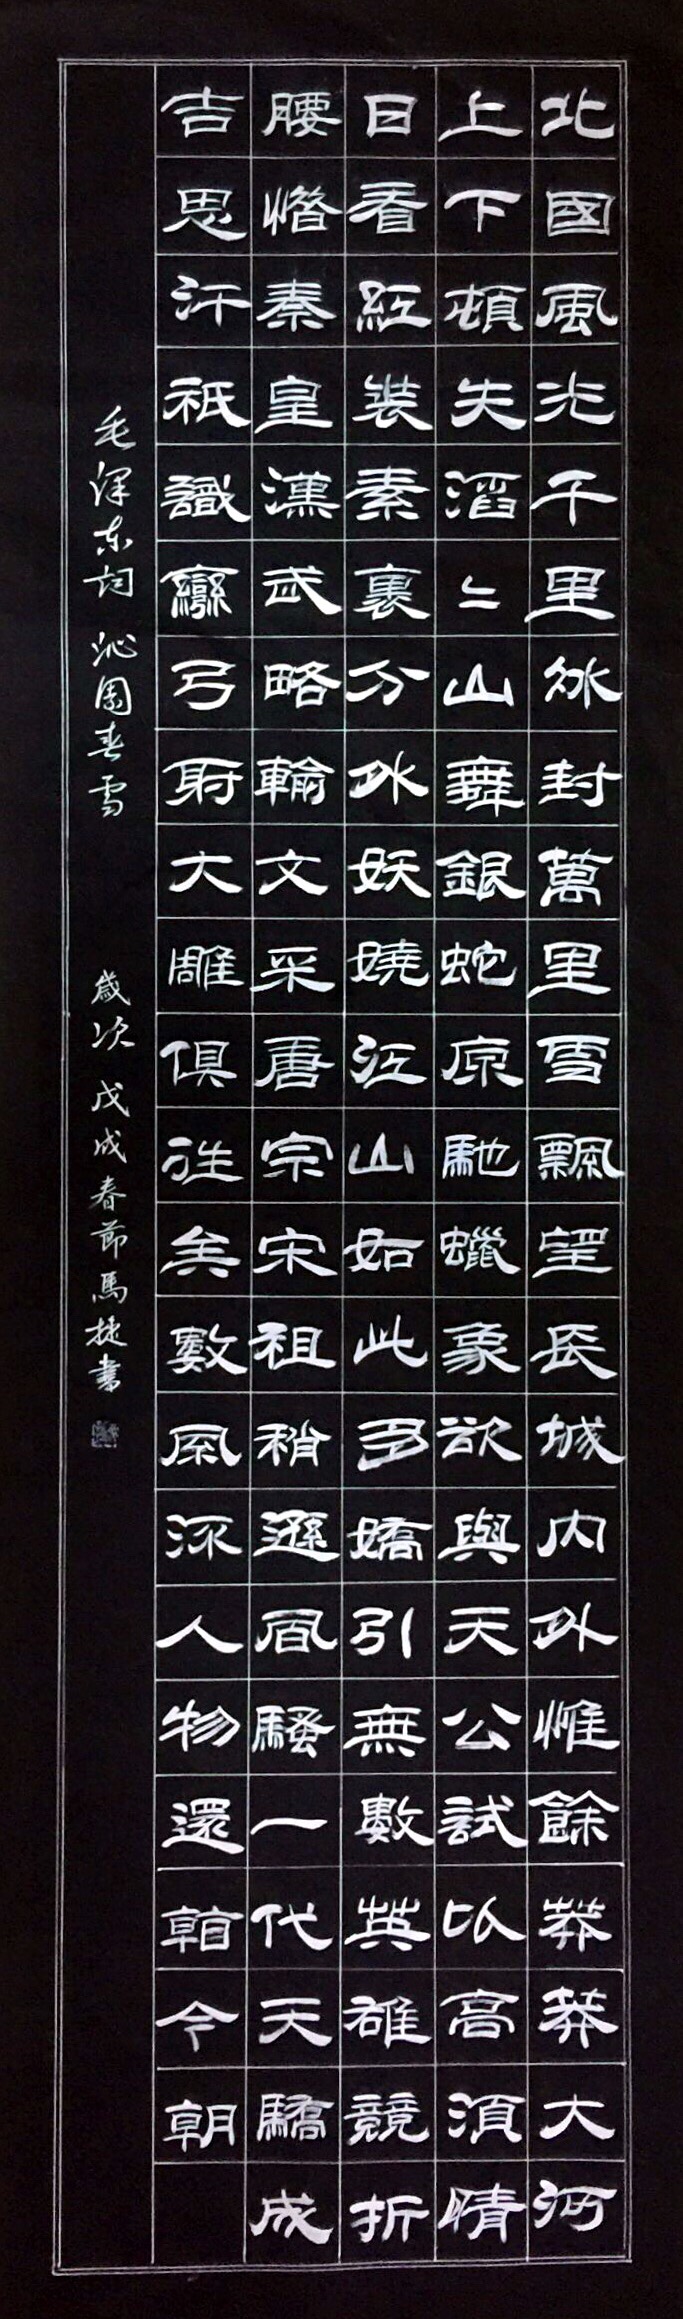 北國風光千里冰封萬里雪飄望長城內外惟餘莽莽大河
上下頓失滔〻山舞銀蛇原馳蠟象欲與天公試以高須晴
日看紅裝素裹分外妖嬈江山如此多嬌引無數英雄競折
腰惜秦皇漢武略輸文采唐宗宋祖稍遜風騷一代天驕成
吉思汗祇識彎弓射大雕俱往矣數風流人物還看今朝
毛澤东詞 沁園春雪 歲次戊戌春節馬捷書